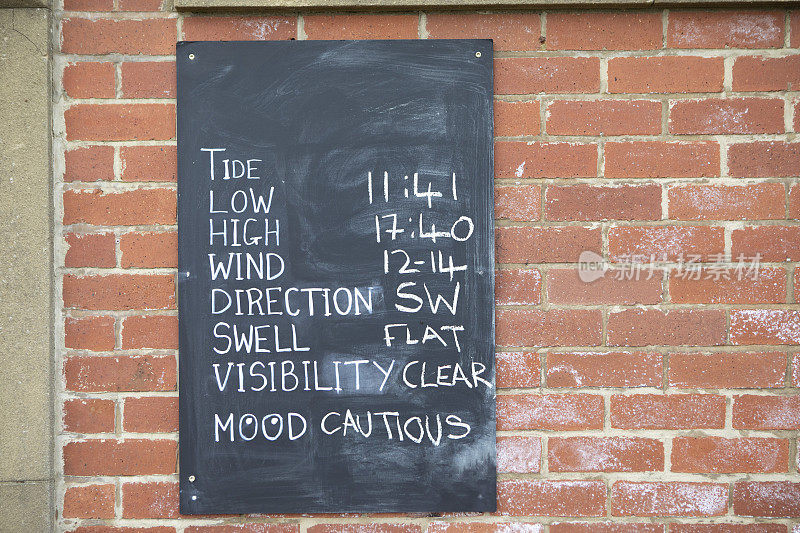 TIDE
LOW 11:41
HIGH 17:40
WIND 12-14
DIRECTION SW
SWELL FLAT
VISIBILITY CLEAR
MOOD CAUTIOUS
新图网视觉